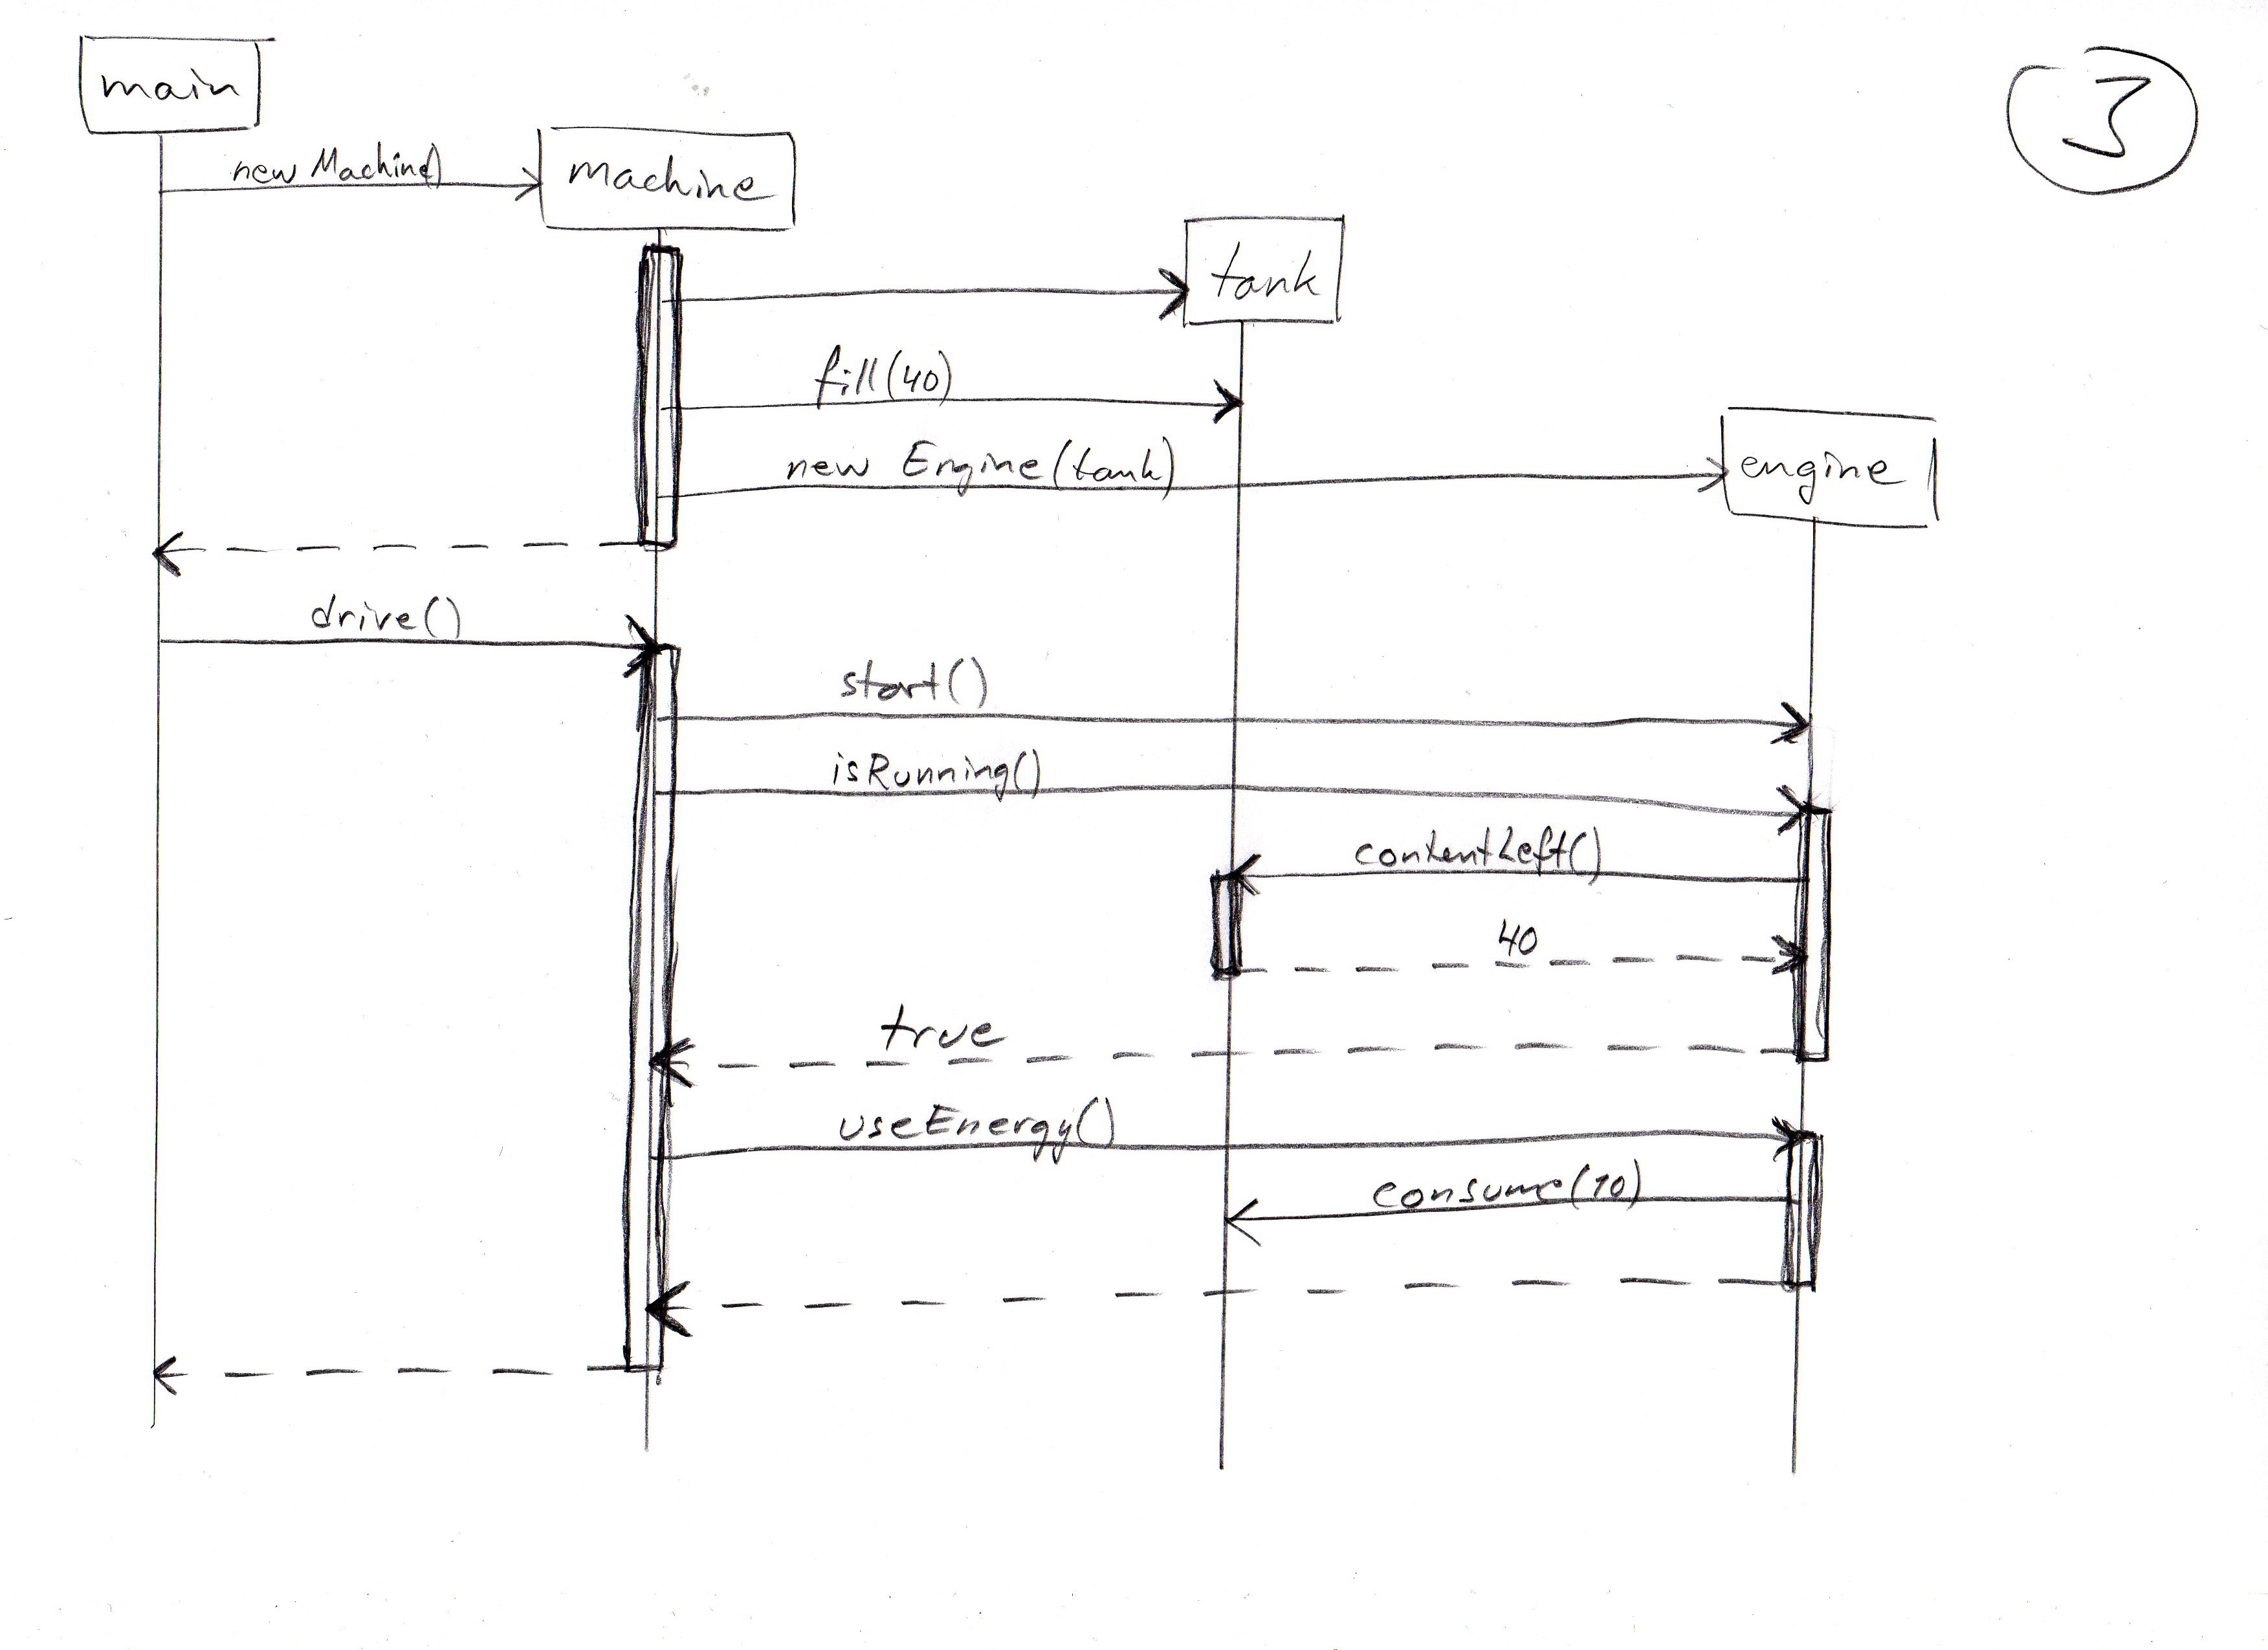 main
3
new Machine()
machine
tank
fill(40)
new Engine(tank)
engine
drive()
start()
isRunning()
contentLeft()
40
true
useEnergy()
consume(10)